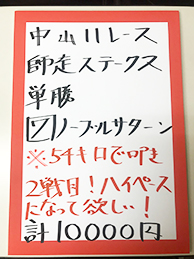 中山11レース
師走ステークス
単勝
7ノーブルサターン
※54キロで叩き
2戦目!ハイペース
になって欲しい!
計10000円